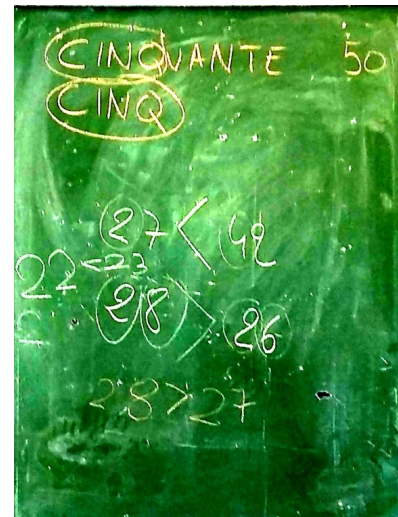 CINQUANTE 50
CINQ
27 < 42
22 < 23
28 > 26
28 > 27